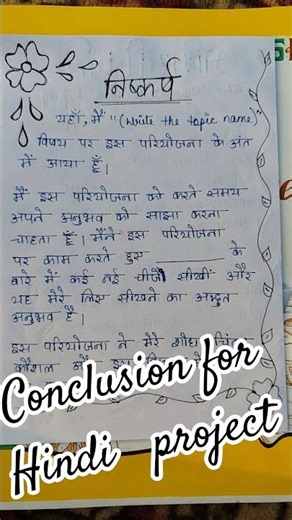 निष्कर्ष
यहाँ, मैं "(write the topic name)"
विषय पर इस परियोजना के अंत
में आया हूँ।
मैं इस परियोजना को करते समय
अपने अनुभव को साझा करना
चाहता हूँ। मैंने इस परियोजना
पर काम करते हुए ________ के
बारे में कई नई चीजें सीखीं और
यह मेरे लिए सीखने का अद्भुत
अनुभव है।
इस परियोजना ने मेरे शोध
Conclusion for
Hindi project